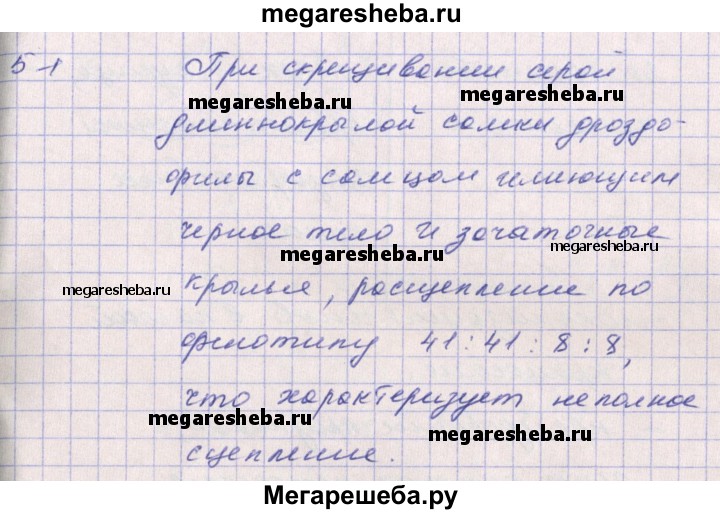 megaresheba.ru
5-1 При скрещивании серой
megaresheba.ru megaresheba.ru
длиннокрылой самки дрозо-
филы с самцом имеющим
черное тело и зачаточные
megaresheba.ru megaresheba.ru
megaresheba.ru крылья, расщепление по
фенотипу 41 : 41 : 8 : 8,
что характеризует неполное
megaresheba.ru megaresheba.ru
сцепление.
Мегарешеба.ру